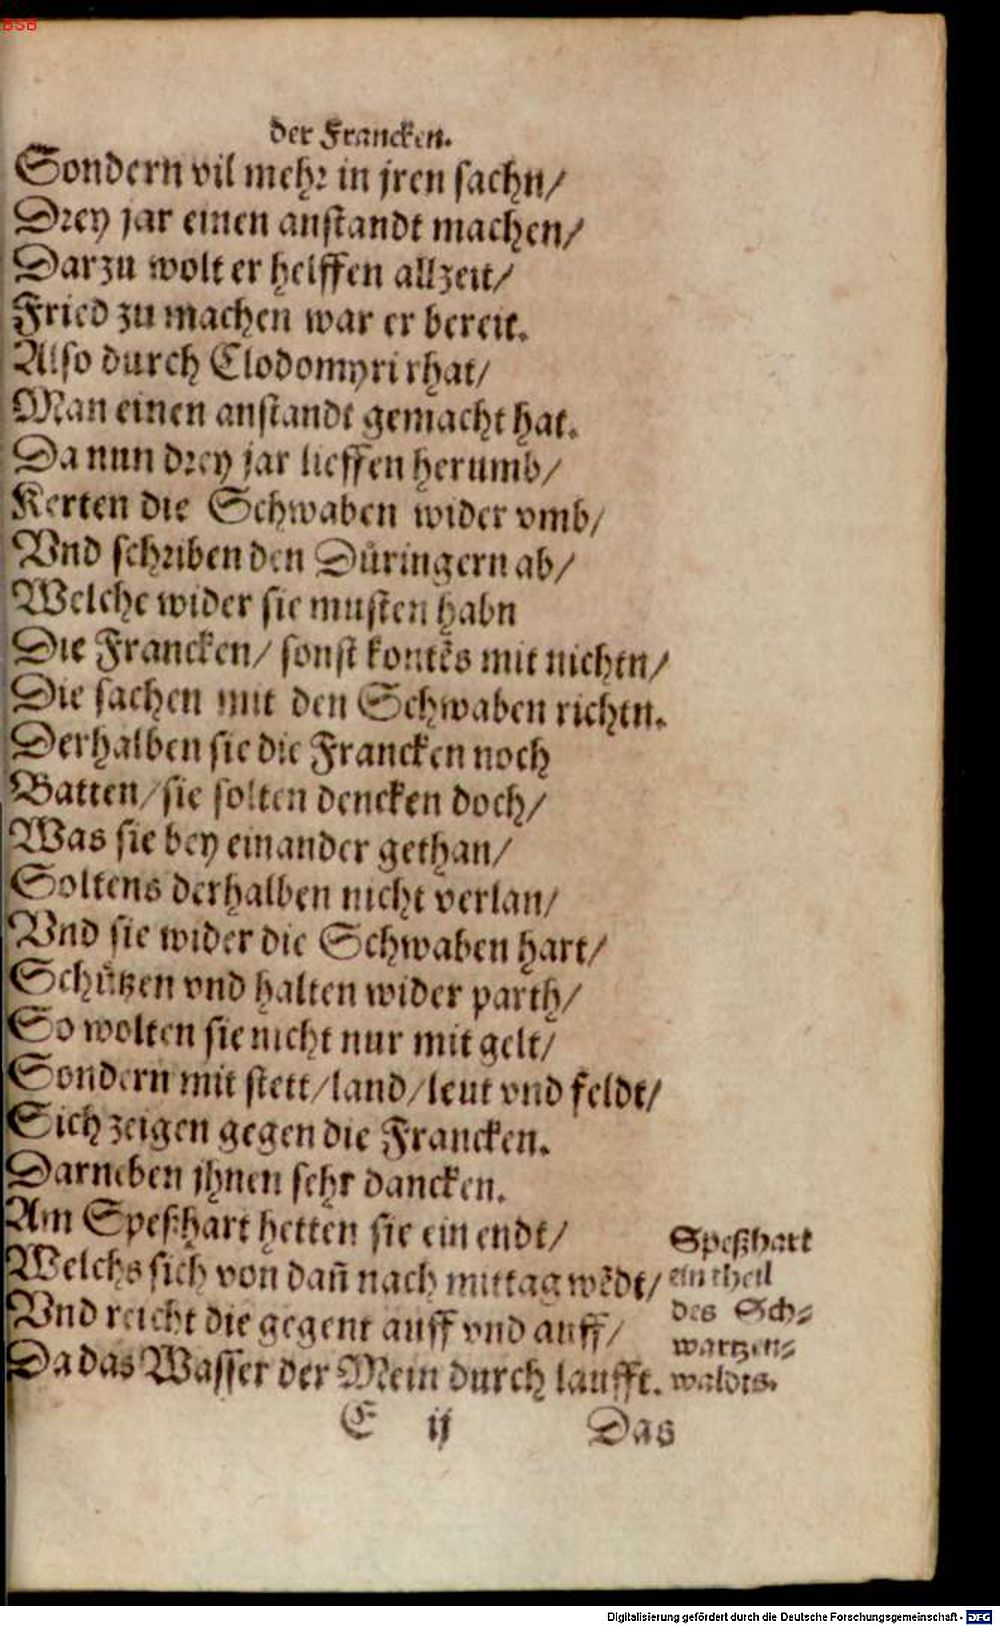 BSB
der Francken.
Sondern vil mehr in jren sachn/
Drey jar einen anstandt machen/
Darzu wolt er helffen allzeit/
Fried zu machen war er bereit.
Also durch Clodomyri rhat/
Man einen anstandt gemacht hat.
Da nun drey jar lieffen herumb/
Kerten die Schwaben wider vmb/
Vnd schriben den Düringern ab/
Welche wider sie musten habn
Die Francken/ sonst kontẽs mit nichtn/
Die sachen mit den Schwaben richtn.
Derhalben sie die Francken noch
Batten/ sie solten dencken doch/
Was sie bey einander gethan/
Soltens derhalben nicht verlan/
Vnd sie wider die Schwaben hart/
Schützen vnd halten wider parth/
So wolten sie nicht nur mit gelt/
Sondern mit stett/ land/ leut vnd feldt/
Sich zeigen gegen die Francken.
Darneben jhnen sehr dancken.
Am Speßhart hetten sie ein endt/
Welchs sich von dañ nach mittag wẽdt/
Vnd reicht die gegent auff vnd auff/
Da das Wasser der Mein durch laufft.
Speßhart
ein theil
des Sch-
wartzen-
waldts.
E ij Das
Digitalisierung gefördert durch die Deutsche Forschungsgemeinschaft - DFG